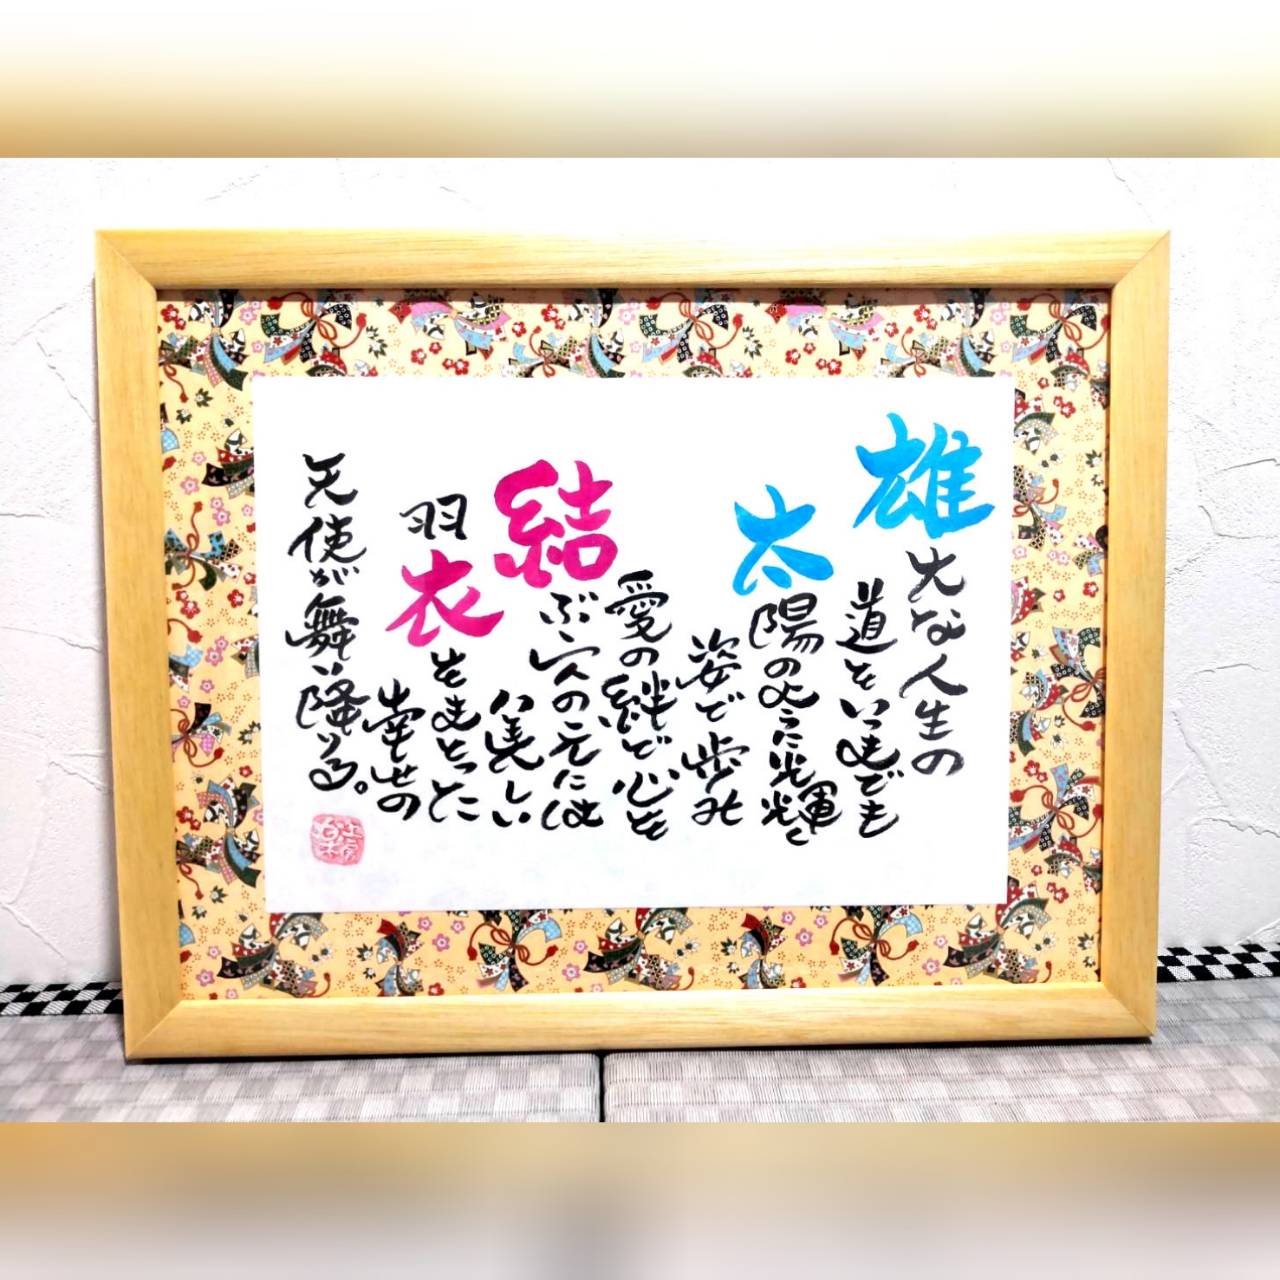 雄大な人生の
道をいつまでも
太陽のように光輝く
姿で歩み
愛の絆で心を
結ぶ二人のもとには
美しい
羽衣をまとった
幸せの
天使が舞い降りる。